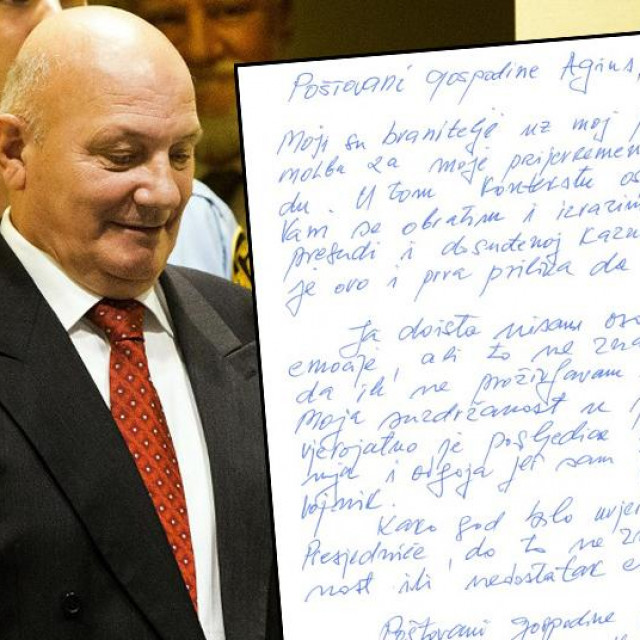 Poštovani gospodine Agius,
Moji su branitelji uz moj
molba za moje prijevremen
du. U tom kontekstu os
Vam se obratim i izrazim
presudi i dosuđenoj kazn
je ovo i prva prilika da
Ja doista nisam
emocije, ali to ne zna
da ih ne proživljavam
Moja suzdržanost u
vjerojatno je posljedica
i odgoja jer sam
vojnik.
Kako god bilo uvjer
Predsjedniče, da to ne zn
nost ili nedostatak e
Poštovani gospodine